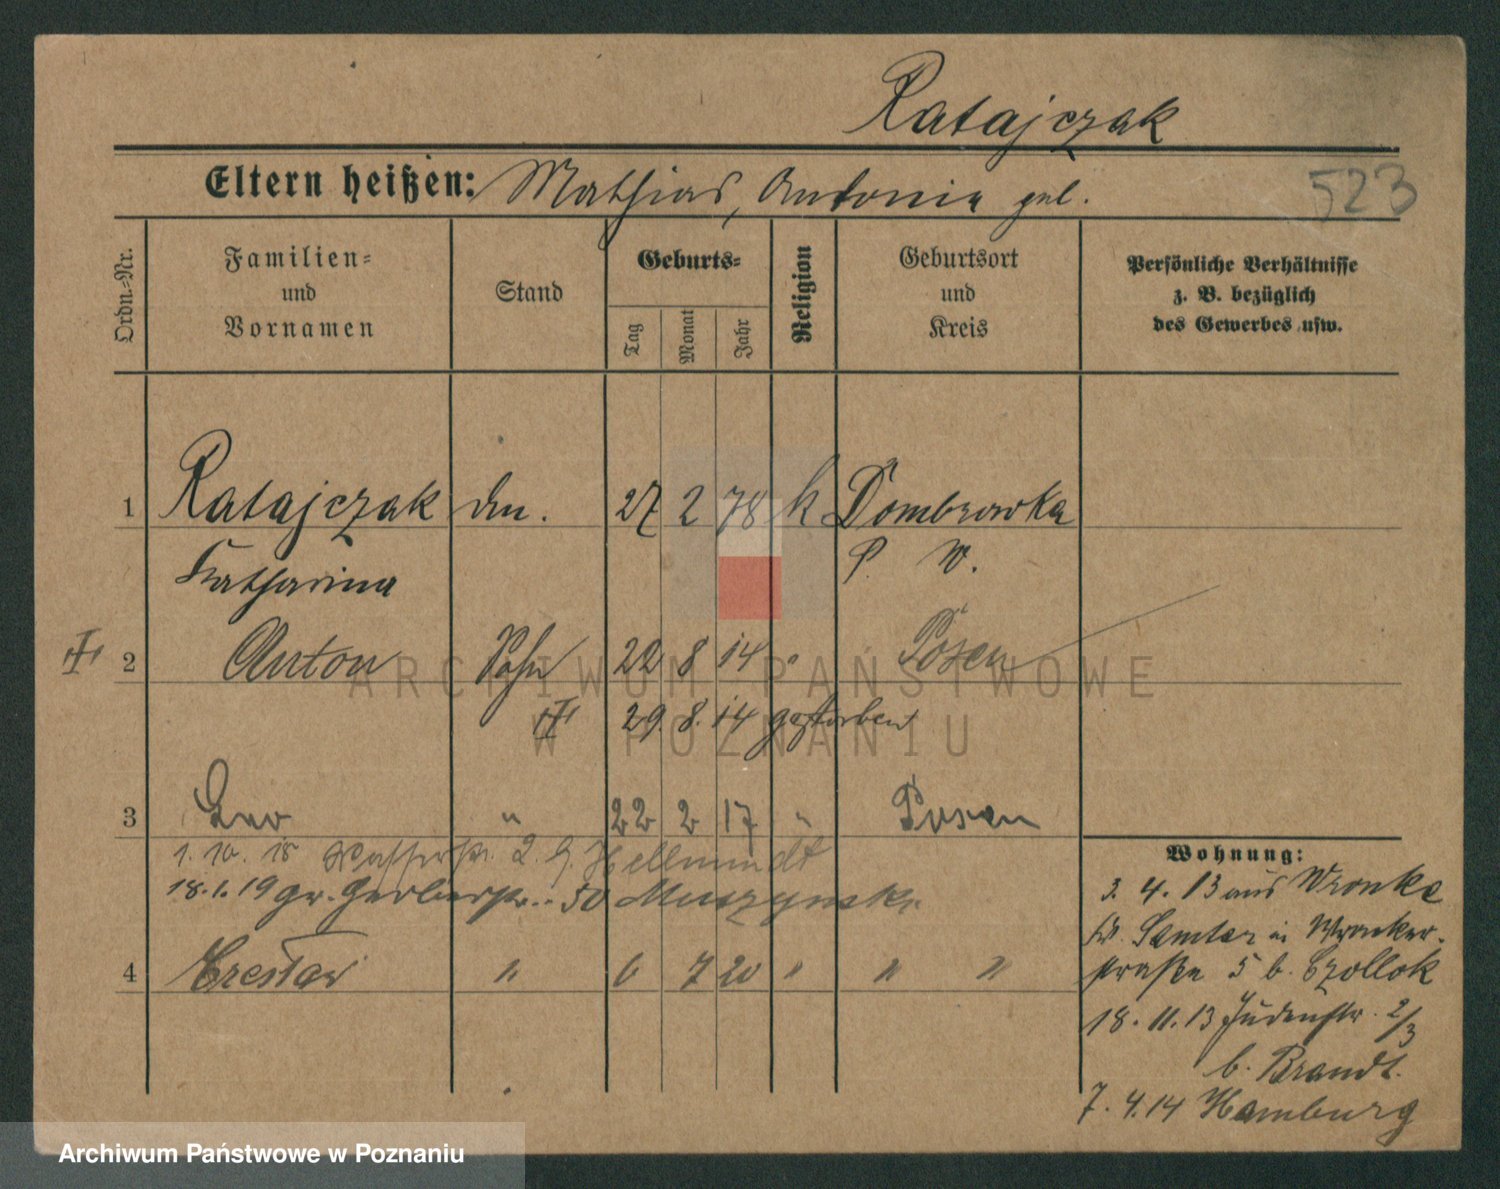 Ratajczak
Eltern heißen: Mathias, Antonia gel.
523
Ordn.-Nr.
Familien-
und
Vornamen
Stand
Geburts-
Tag
Monat
Jahr
Religion
Geburtsort
und
Kreis
Persönliche Verhältnisse
z. B. bezüglich
des Gewerbes usw.
1 Ratajczak 27 2 78 k Dombrowka
Katharina P. W.
2 Anton Sohn 22 8 14 " Posen
29. 8. 14 gestorben
3 Leo " 22 2 17 " Posen
1. 10. 18 Wasserstr. 2. b. Hellmundt
18. 1. 19 gr. Gerberstr. 50 Muszynski
4 Czeslaw " 6 7 20 " " "
Wohnung:
3. 4. 13 aus Wronke
Kr. Samter in Wronker-
straße 5 b. Czollok
18. 11. 13 Judenstr. 2/3
b. Brandt.
7. 4. 14 Hamburg
ARCHIWUM PAŃSTWOWE
W POZNANIU
Archiwum Państwowe w Poznaniu